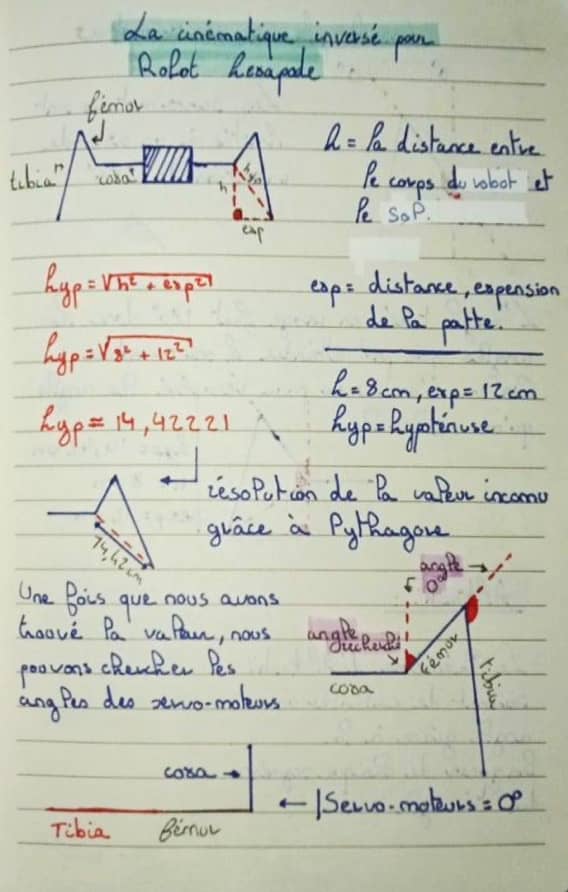 La cinématique inversé pour
Robot hexapode
fémur
tibia
coxa
h
hyp
exp
h = la distance entre
le corps du robot et
le sol.
hyp = √h² + exp²
exp = distance, expension
de la patte.
hyp = √8² + 12²
h = 8cm, exp = 12cm
hyp = hypoténuse
hyp ≈ 14,42221
résolution de la valeur inconnu
grâce à Pythagore
14,42cm
Une fois que nous avons
trouvé la valeur, nous
pouvons chercher les
angles des servo-moteurs
angle
0°
angle
recherché
coxa
fémur
tibia
coxa →
← Servo-moteurs = 0°
Tibia fémur